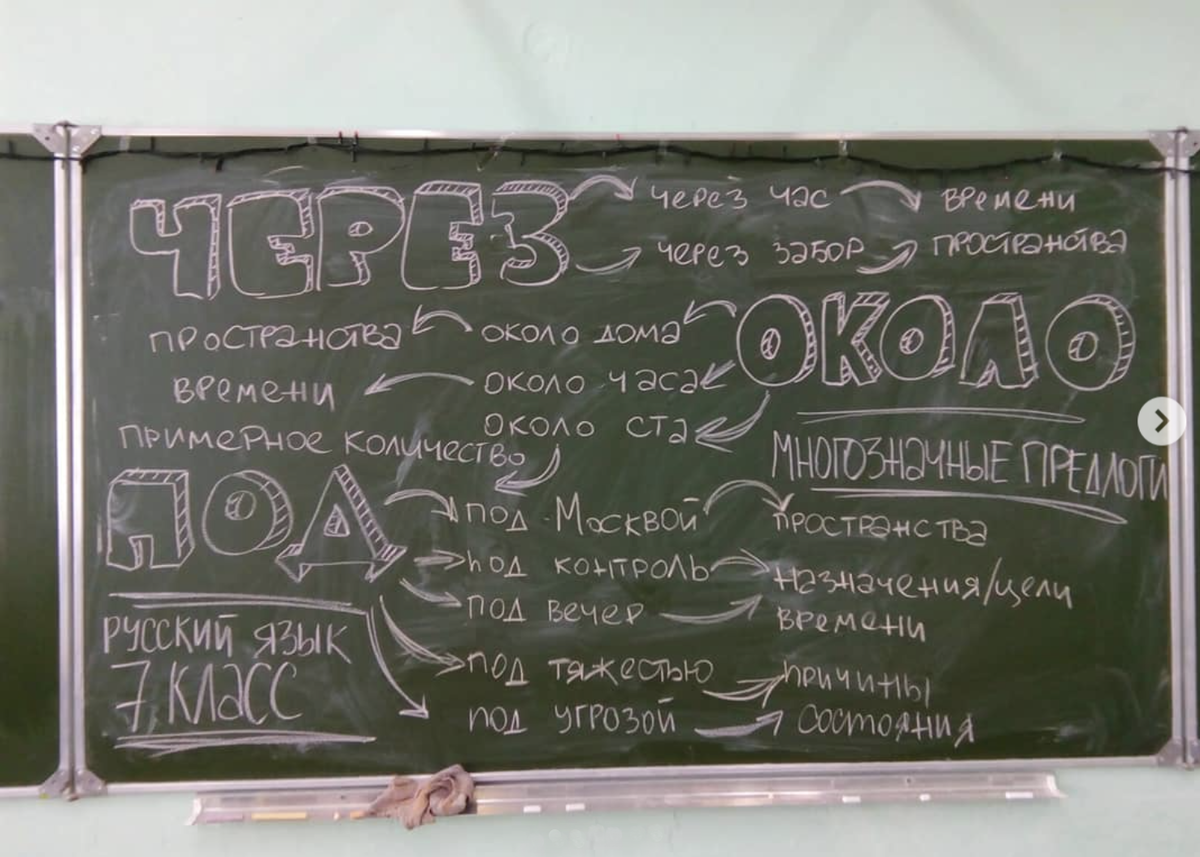 ЧЕРЕЗ
через час
времени
через забор
пространства
ОКОЛО
около дома
пространства
около часа
времени
около ста
примерное количество
МНОГОЗНАЧНЫЕ ПРЕДЛОГИ
ПОД
под Москвой
пространства
под контроль
назначения/цели
под вечер
времени
под тяжестью
причины
под угрозой
состояния
РУССКИЙ ЯЗЫК
7 КЛАСС